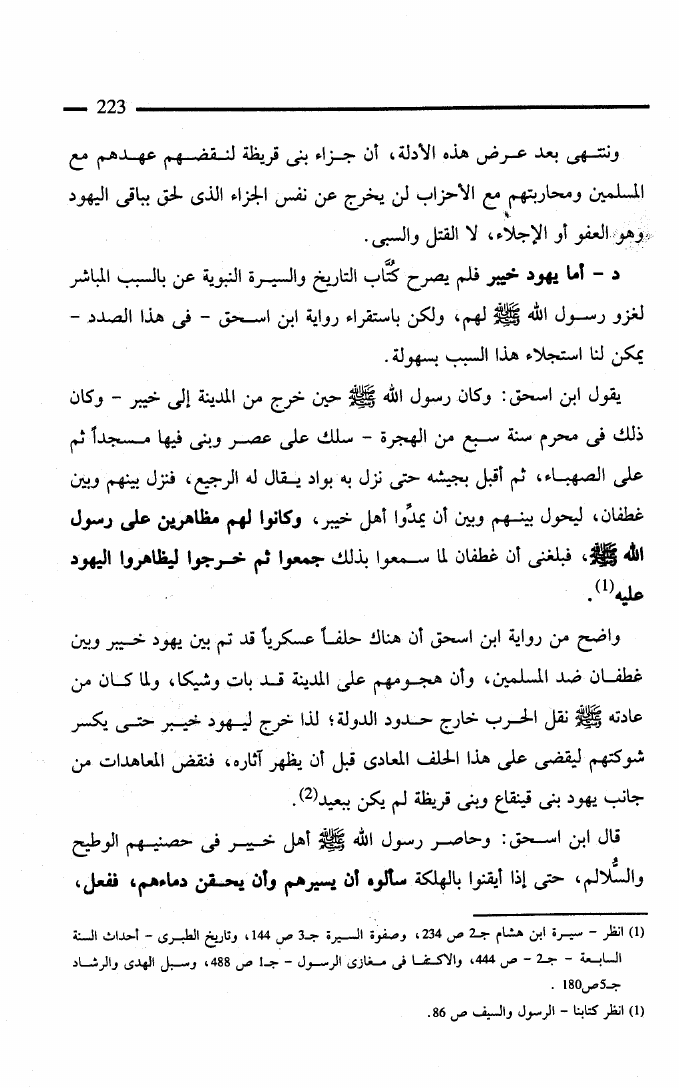 223
وننتهى بعد عرض هذه الأدلة، أن جزاء بنى قريظة لنقضهم عهدهم مع
المسلمين ومحاربتهم مع الأحزاب لن يخرج عن نفس الجزاء الذى لحق بباقى اليهود
وهو العفو أو الإجلاء، لا القتل والسبى.
د - أما يهود خيبر فلم يصرح كُتَّاب التاريخ والسيرة النبوية عن بالسبب المباشر
لغزو رسول الله ﷺ لهم، ولكن باستقراء رواية ابن اسحق - فى هذا الصدد -
يمكن لنا استجلاء هذا السبب بسهولة.
يقول ابن اسحق: وكان رسول الله ﷺ حين خرج من المدينة إلى خيبر - وكان
ذلك فى محرم سنة سبع من الهجرة - سلك على عصر وبنى فيها مسجداً ثم
على الصهباء، ثم أقبل بجيشه حتى نزل به بواد يقال له الرجيع، فنزل بينهم وبين
غطفان، ليحول بينهم وبين أن يمدُّوا أهل خيبر، وكانوا لهم مظاهرين على رسول
الله ﷺ، فبلغنى أن غطفان لما سمعوا بذلك جمعوا ثم خرجوا ليظاهروا اليهود
عليه(1).
واضح من رواية ابن اسحق أن هناك حلفاً عسكرياً قد تم بين يهود خيبر وبين
غطفان ضد المسلمين، وأن هجومهم على المدينة قد بات وشيكا، ولما كان من
عادته ﷺ نقل الحرب خارج حدود الدولة؛ لذا خرج ليهود خيبر حتى يكسر
شوكتهم ليقضى على هذا الحلف المعادى قبل أن يظهر آثاره، فنقض المعاهدات من
جانب يهود بنى قينقاع وبنى قريظة لم يكن ببعيد(2).
قال ابن اسحق: وحاصر رسول الله ﷺ أهل خيبر فى حصنيهم الوطيح
والسُّلالم، حتى إذا أيقنوا بالهلكة سألوه أن يسيرهم وأن يحقن دماءهم، ففعل،
(1) انظر - سيرة ابن هشام جـ2 ص 234، وصفوة السيرة جـ3 ص 144، وتاريخ الطبرى - أحداث السنة
السابعة - جـ2 - ص 444، والاكتفا فى مغازى الرسول - جـ1 ص 488، وسبل الهدى والرشاد
جـ5ص180 .
(1) انظر كتابنا - الرسول والسيف ص 86.